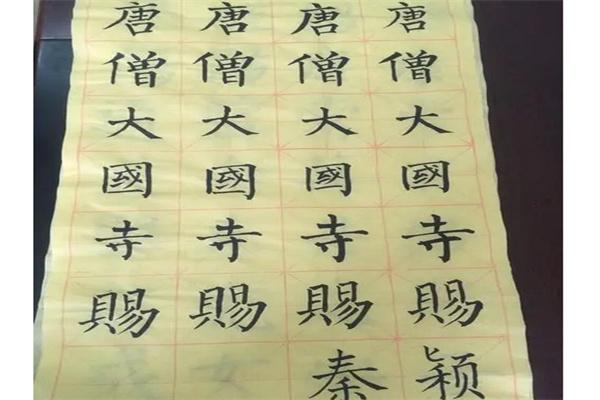 唐唐唐唐
僧僧僧僧
大大大大
國國國國
寺寺寺寺
賜賜賜賜
秦颖